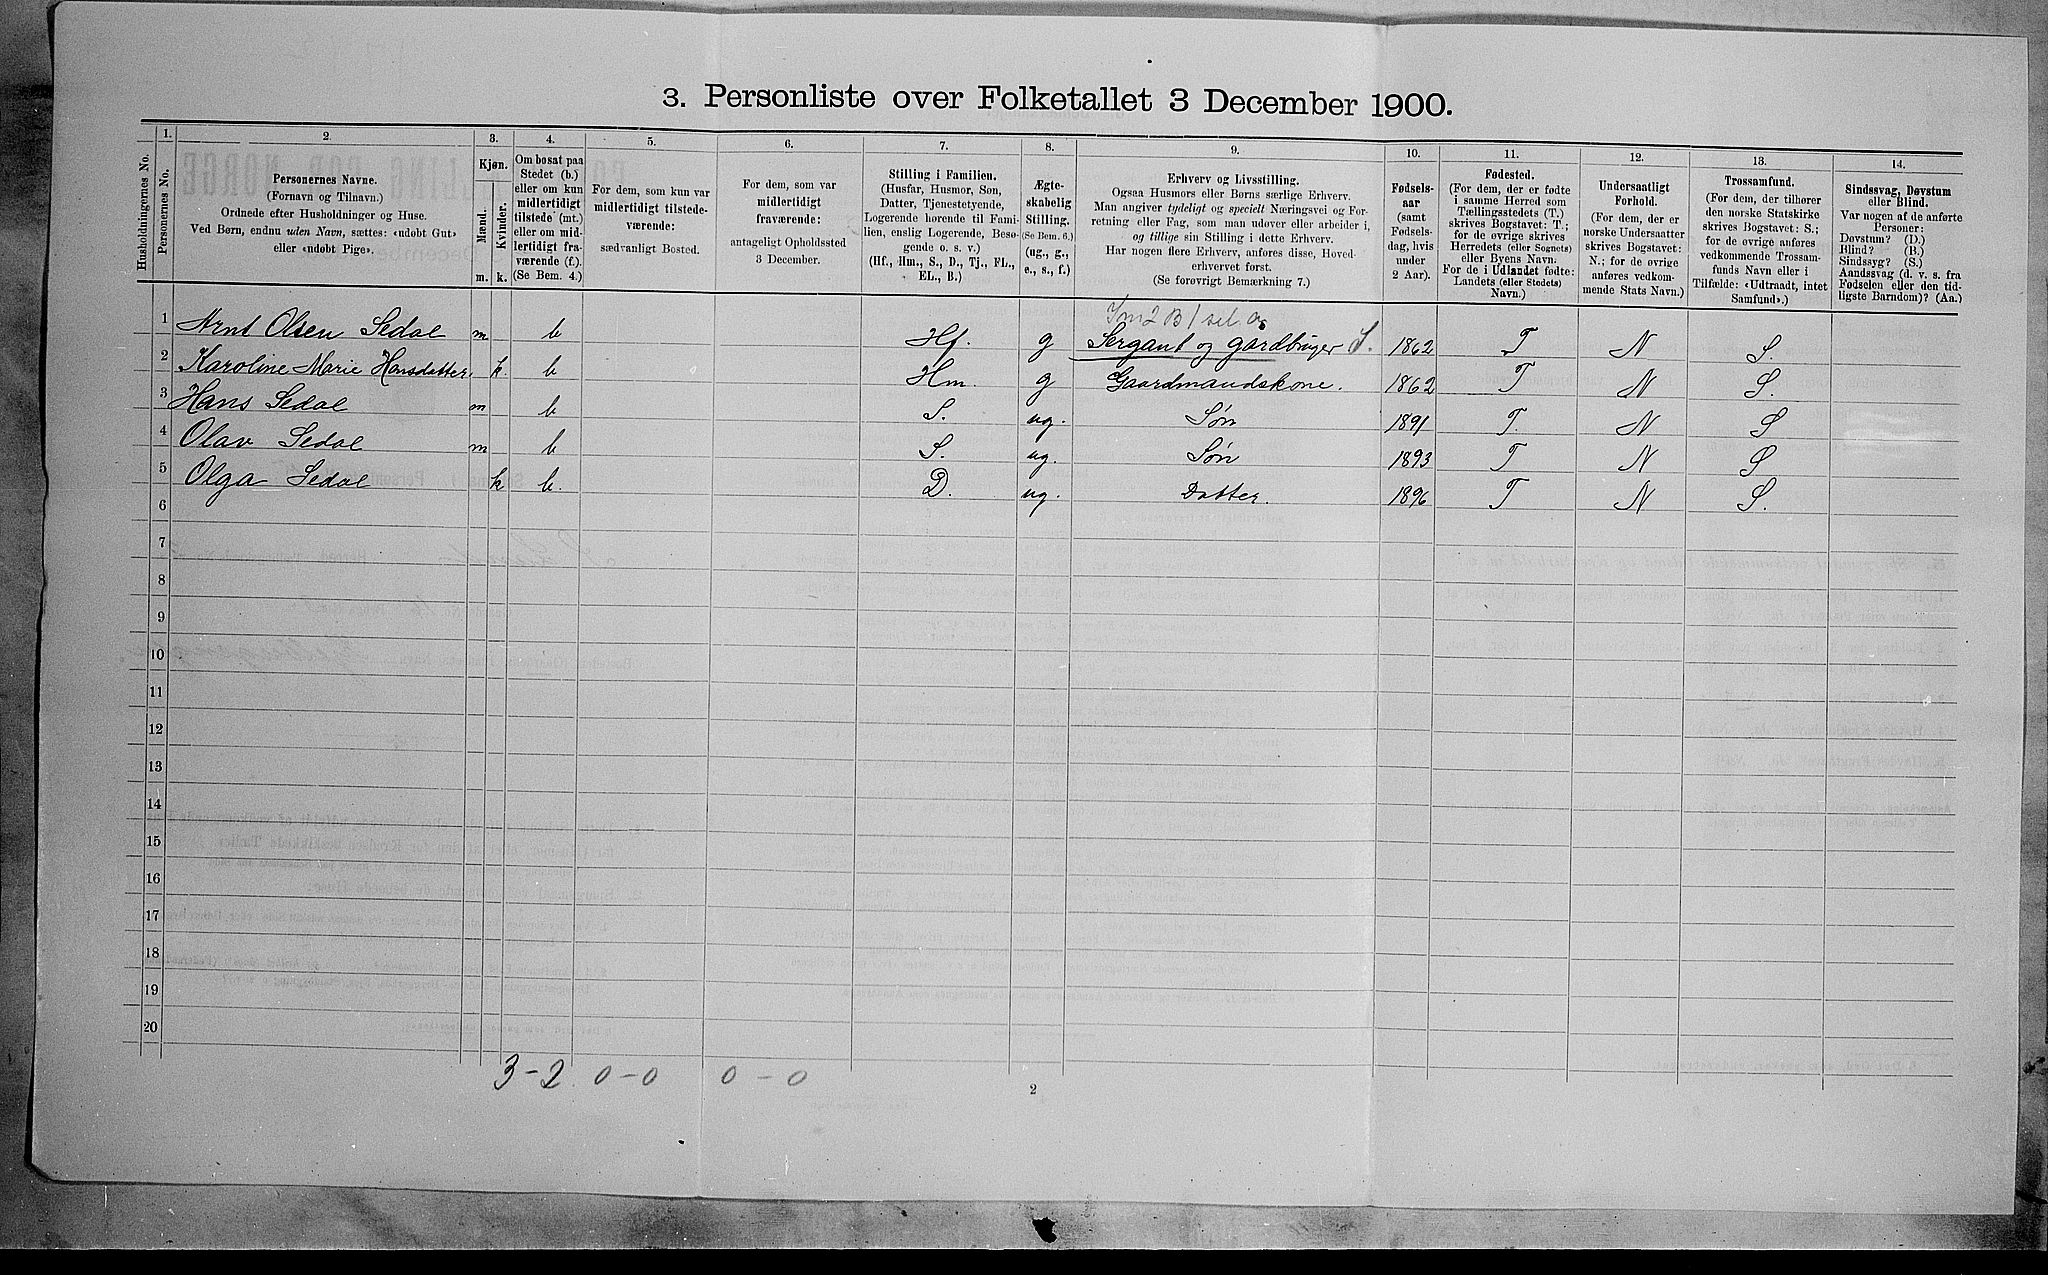 3. Personliste over Folketallet 3 December 1900.
Husholdningernes No.
1.
Personernes No.
2.
Personernes Navne.
(Fornavn og Tilnavn.)
Ordnede efter Husholdninger og Huse.
Ved Børn, endnu uden Navn, sættes: «udøbt Gut»
eller «udøbt Pige».
3.
Kjøn.
Mænd.
Kvinder.
m. k.
4.
Om bosat paa
Stedet (b.)
eller om kun
midlertidigt
tilstede (mt.)
eller om mid-
lertidigt fra-
værende (f.).
(Se Bem. 4.)
5.
For dem, som kun var
midlertidigt tilstede-
værende:
sædvanligt Bosted.
6.
For dem, som var
midlertidigt
fraværende:
antageligt Opholdssted
3 December.
7.
Stilling i Familien.
(Husfar, Husmor, Søn,
Datter, Tjenestetyende,
Logerende hørende til Fami-
lien, enslig Logerende, Besø-
gende o. s. v.)
(Hf., Hm., S., D., Tj., FL.,
EL., B.)
8.
Ægte-
skabelig
Stilling.
(Se Bem. 6.)
(ug., g.,
e., s., f.)
9.
Erhverv og Livsstilling.
Ogsaa Husmors eller Børns særlige Erhverv.
Man angiver tydeligt og specielt Næringsvei og For-
retning eller Fag, som man udøver eller arbeider i,
og tillige sin Stilling i dette Erhverv.
Har nogen flere Erhverv, anføres disse, Hoved-
erhvervet først.
(Se forøvrigt Bemærkning 7.)
10.
Fødsels-
aar
(samt
Fødsels-
dag, hvis
under
2 Aar).
11.
Fødested.
(For dem, der er fødte
i samme Herred som
Tællingsstedets (T.)
skrives Bogstavet: T.;
for de øvrige skrives
Herredets (eller Sognets)
eller Byens Navn.
For de i Udlandet fødte:
Landets (eller Stedets)
Navn.)
12.
Undersaatligt
Forhold.
(For dem, der er
norske Undersaatter
skrives Bogstavet:
N.; for de øvrige
anføres vedkom-
mende Stats Navn.)
13.
Trossamfund.
(For dem, der tilhører
den norske Statskirke
skrives Bogstavet: S.;
for de øvrige anføres
vedkommende Trossam-
funds Navn eller i
Tilfælde: «Udtraadt, intet
Samfund».)
14.
Sindssvag, Døvstum
eller Blind.
Var nogen af de anførte
Personer:
Døvstum? (D.)
Blind? (B.)
Sindssyg? (S.)
Aandssvag (d. v. s. fra
Fødselen eller den tid-
ligste Barndom)? (Aa.)
1 Arnt Olsen Sedal m b Hf. g Sergant og gardbruger S. 1862 T N S.
2 Karoline Marie Hansdatter. k. b Hm. g Gaardmandskone. 1862 T N S.
3 Hans Sedal m b S. ug. Søn 1891 T. N S
4 Olav Sedal m b S. ug. Søn 1893 T N S
5 Olga Sedal k b. D. ug. Datter. 1896 T N S.
6
7
8
9
10
11
12
13
14
15
16
17
18
19
20
3 - 2 0 - 0 0 - 0
2